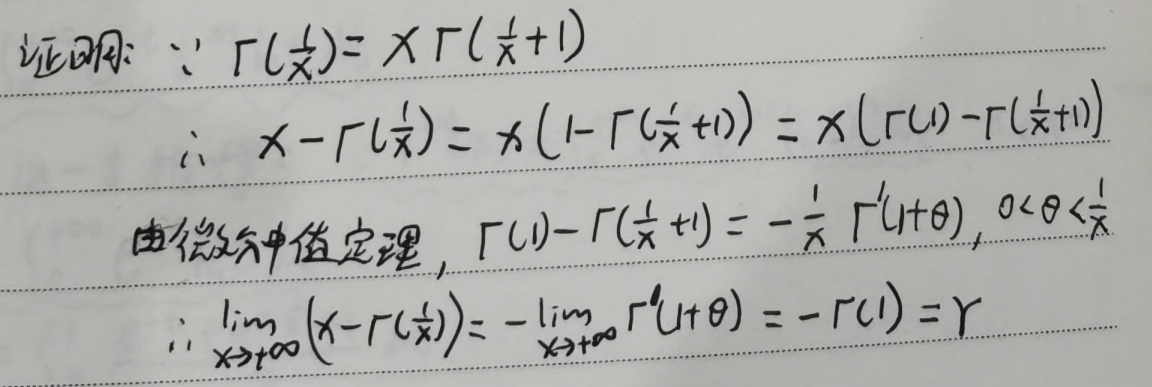 证明: ∵ Γ(1/x) = xΓ(1/x+1)
∴ x-Γ(1/x) = x(1-Γ(1/x+1)) = x(Γ(1)-Γ(1/x+1))
由微分中值定理, Γ(1)-Γ(1/x+1) = -1/x Γ'(1+θ), 0<θ<1/x
∴ lim x→+∞ (x-Γ(1/x)) = -lim x→+∞ Γ'(1+θ) = -Γ(1) = γ